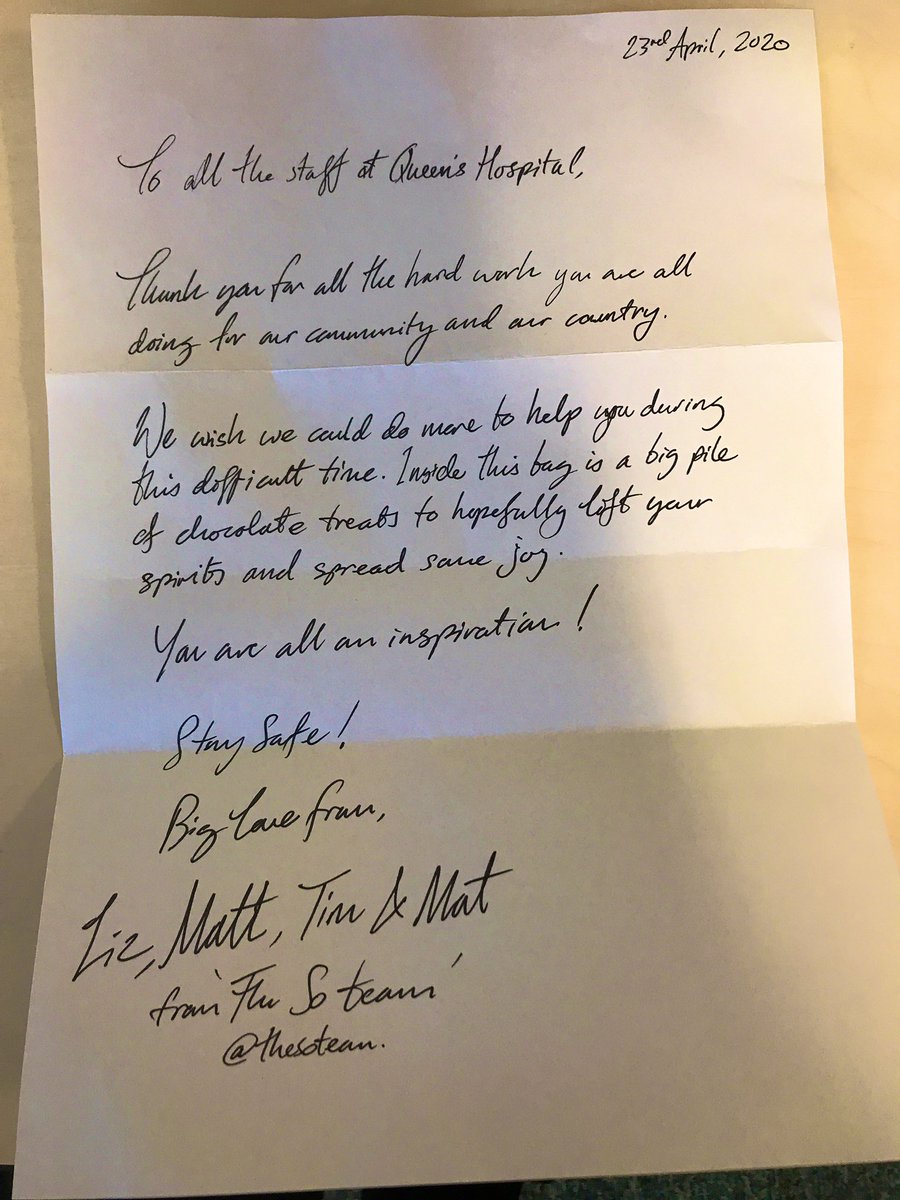 23rd April, 2020
To all the staff at Queen's Hospital,
Thank you for all the hard work you are all
doing for our community and our country.
We wish we could do more to help you during
this difficult time. Inside this bag is a big pile
of chocolate treats to hopefully lift your
spirits and spread some joy.
You are all an inspiration!
Stay Safe!
Big Love from,
Liz, Matt, Tim & Mat
from 'The So team'
@thesoteam.